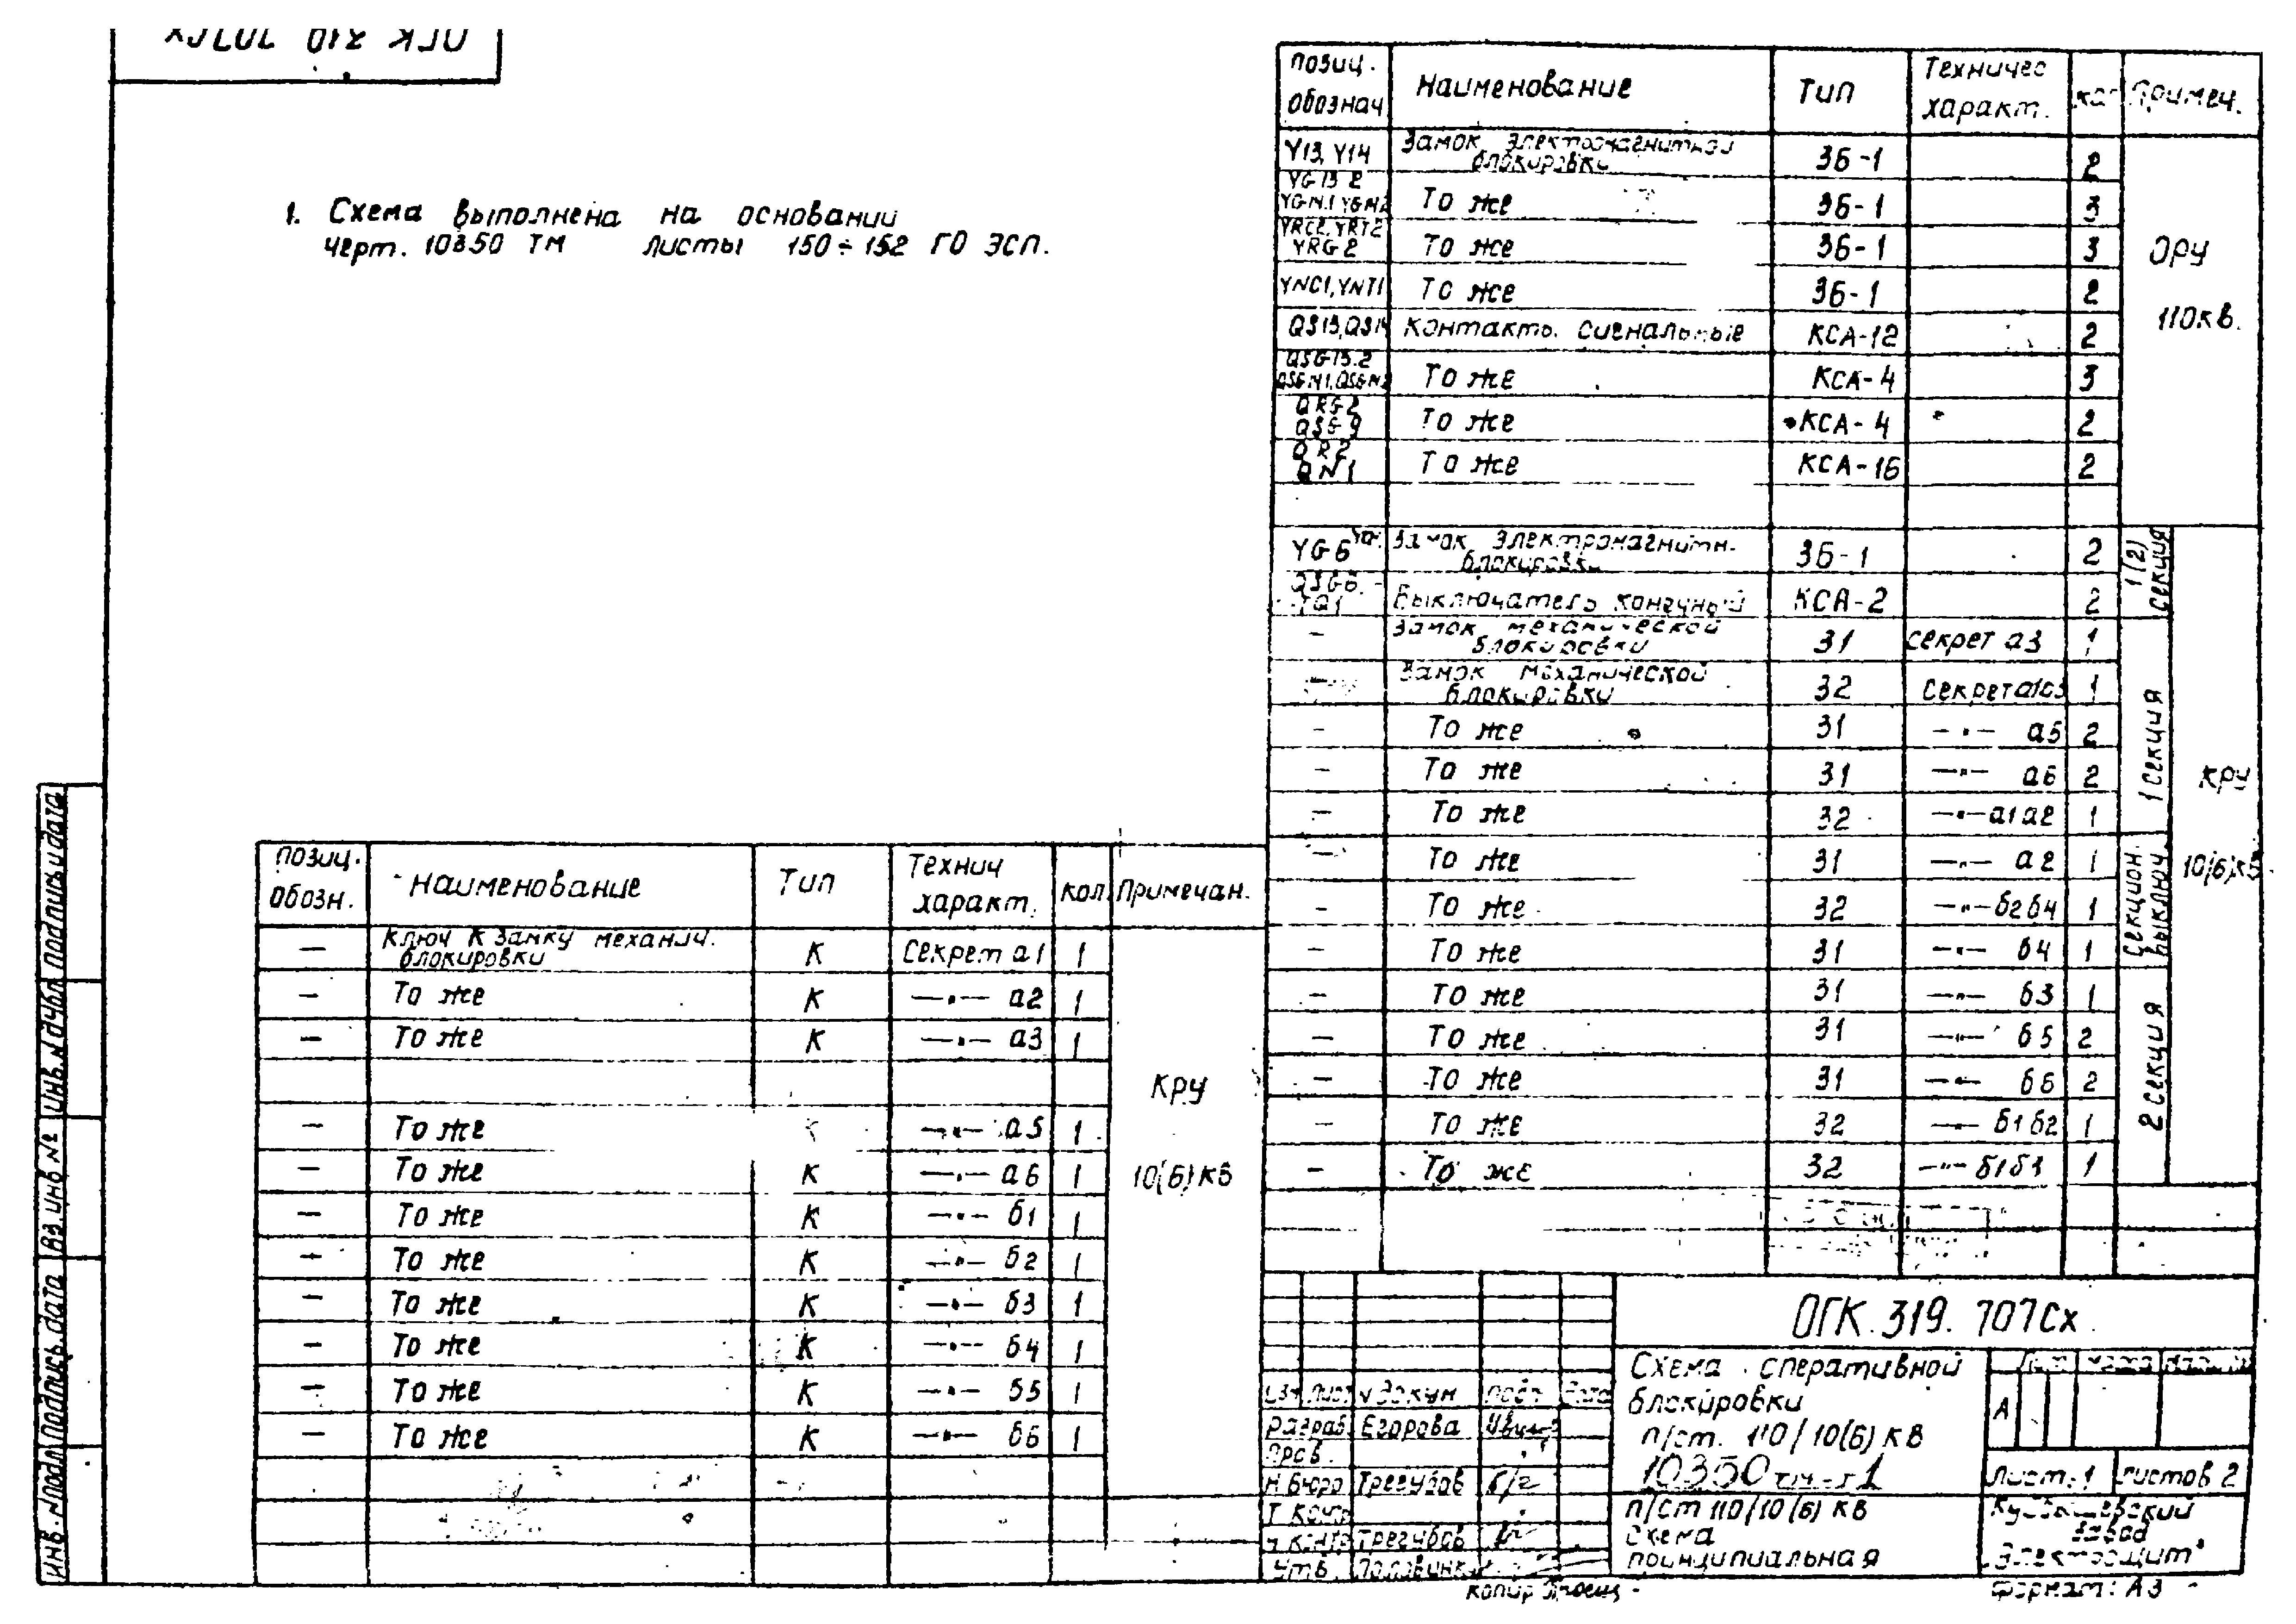 ОГК 319 707Сх
1. Схема выполнена на основании
черт. 10350 ТМ листы 150÷152 ГО ЭСП.
позиц. обознач Наименование Тип Техничес характ. кол Примеч.
Y13, Y14 Замок электромагнитной блокировки ЗБ-1 2
YG13 2 YGN.1 YGN2 То же ЗБ-1 3
YRC2, YRT2 YRG2 То же ЗБ-1 3
YNC1, YNT1 То же ЗБ-1 2
QS13, QS14 Контакты сигнальные КСА-12 2
QSG13.2 QSGN1, QSGN2 То же КСА-4 3
QRG2 QSG9 То же КСА-4 2
QR2 QN1 То же КСА-16 2
ОРУ
110кв.
YG6 Замок электромагнитн. блокировки ЗБ-1 2
QSG6 Выключатель конечный КСА-2 2
1(2) секция
– Замок механической блокировки 31 секрет а3 1
– Замок механической блокировки 32 секрет 1
– То же 31 —"— а5 2
– То же 31 —"— а6 2
– То же 32 —"— а1а2 1
1 секция
– То же 31 —"— а2 1
– То же 32 —"— б2б4 1
– То же 31 —"— б4 1
Секцион. выключ.
– То же 31 —"— б3 1
– То же 31 —"— б5 2
– То же 31 —"— б6 2
– То же 32 —"— б1б2 1
– То же 32 —"— б1б3 1
2 секция
КРУ
10(6)кв
позиц. обозн. Наименование Тип Технич характ. кол. Примечан.
– Ключ к замку механич. блокировки К Секрет а1 1
– То же К —"— а2 1
– То же К —"— а3 1
– То же К —"— а5 1
– То же К —"— а6 1
– То же К —"— б1 1
– То же К —"— б2 1
– То же К —"— б3 1
– То же К —"— б4 1
– То же К —"— б5 1
– То же К —"— б6 1
КРУ
10(6)кв
ОГК.319.707Сх
Схема оперативной
блокировки
п/ст. 110/10(6) кв
п/ст 110/10(6) кв
схема
принципиальная
А
Лист 1 Листов 2
Куйбышевский
завод
"Электрощит"
Изм Лист № докум Подп Дата
Разраб. Егорова
Пров.
Н бюро Трегубов
Т контр
Н контр Трегубов
Утв.
Копир
Формат: А3
Инв. № подл Подпись. дата Вз. инв № Инв. № дубл Подпись и дата